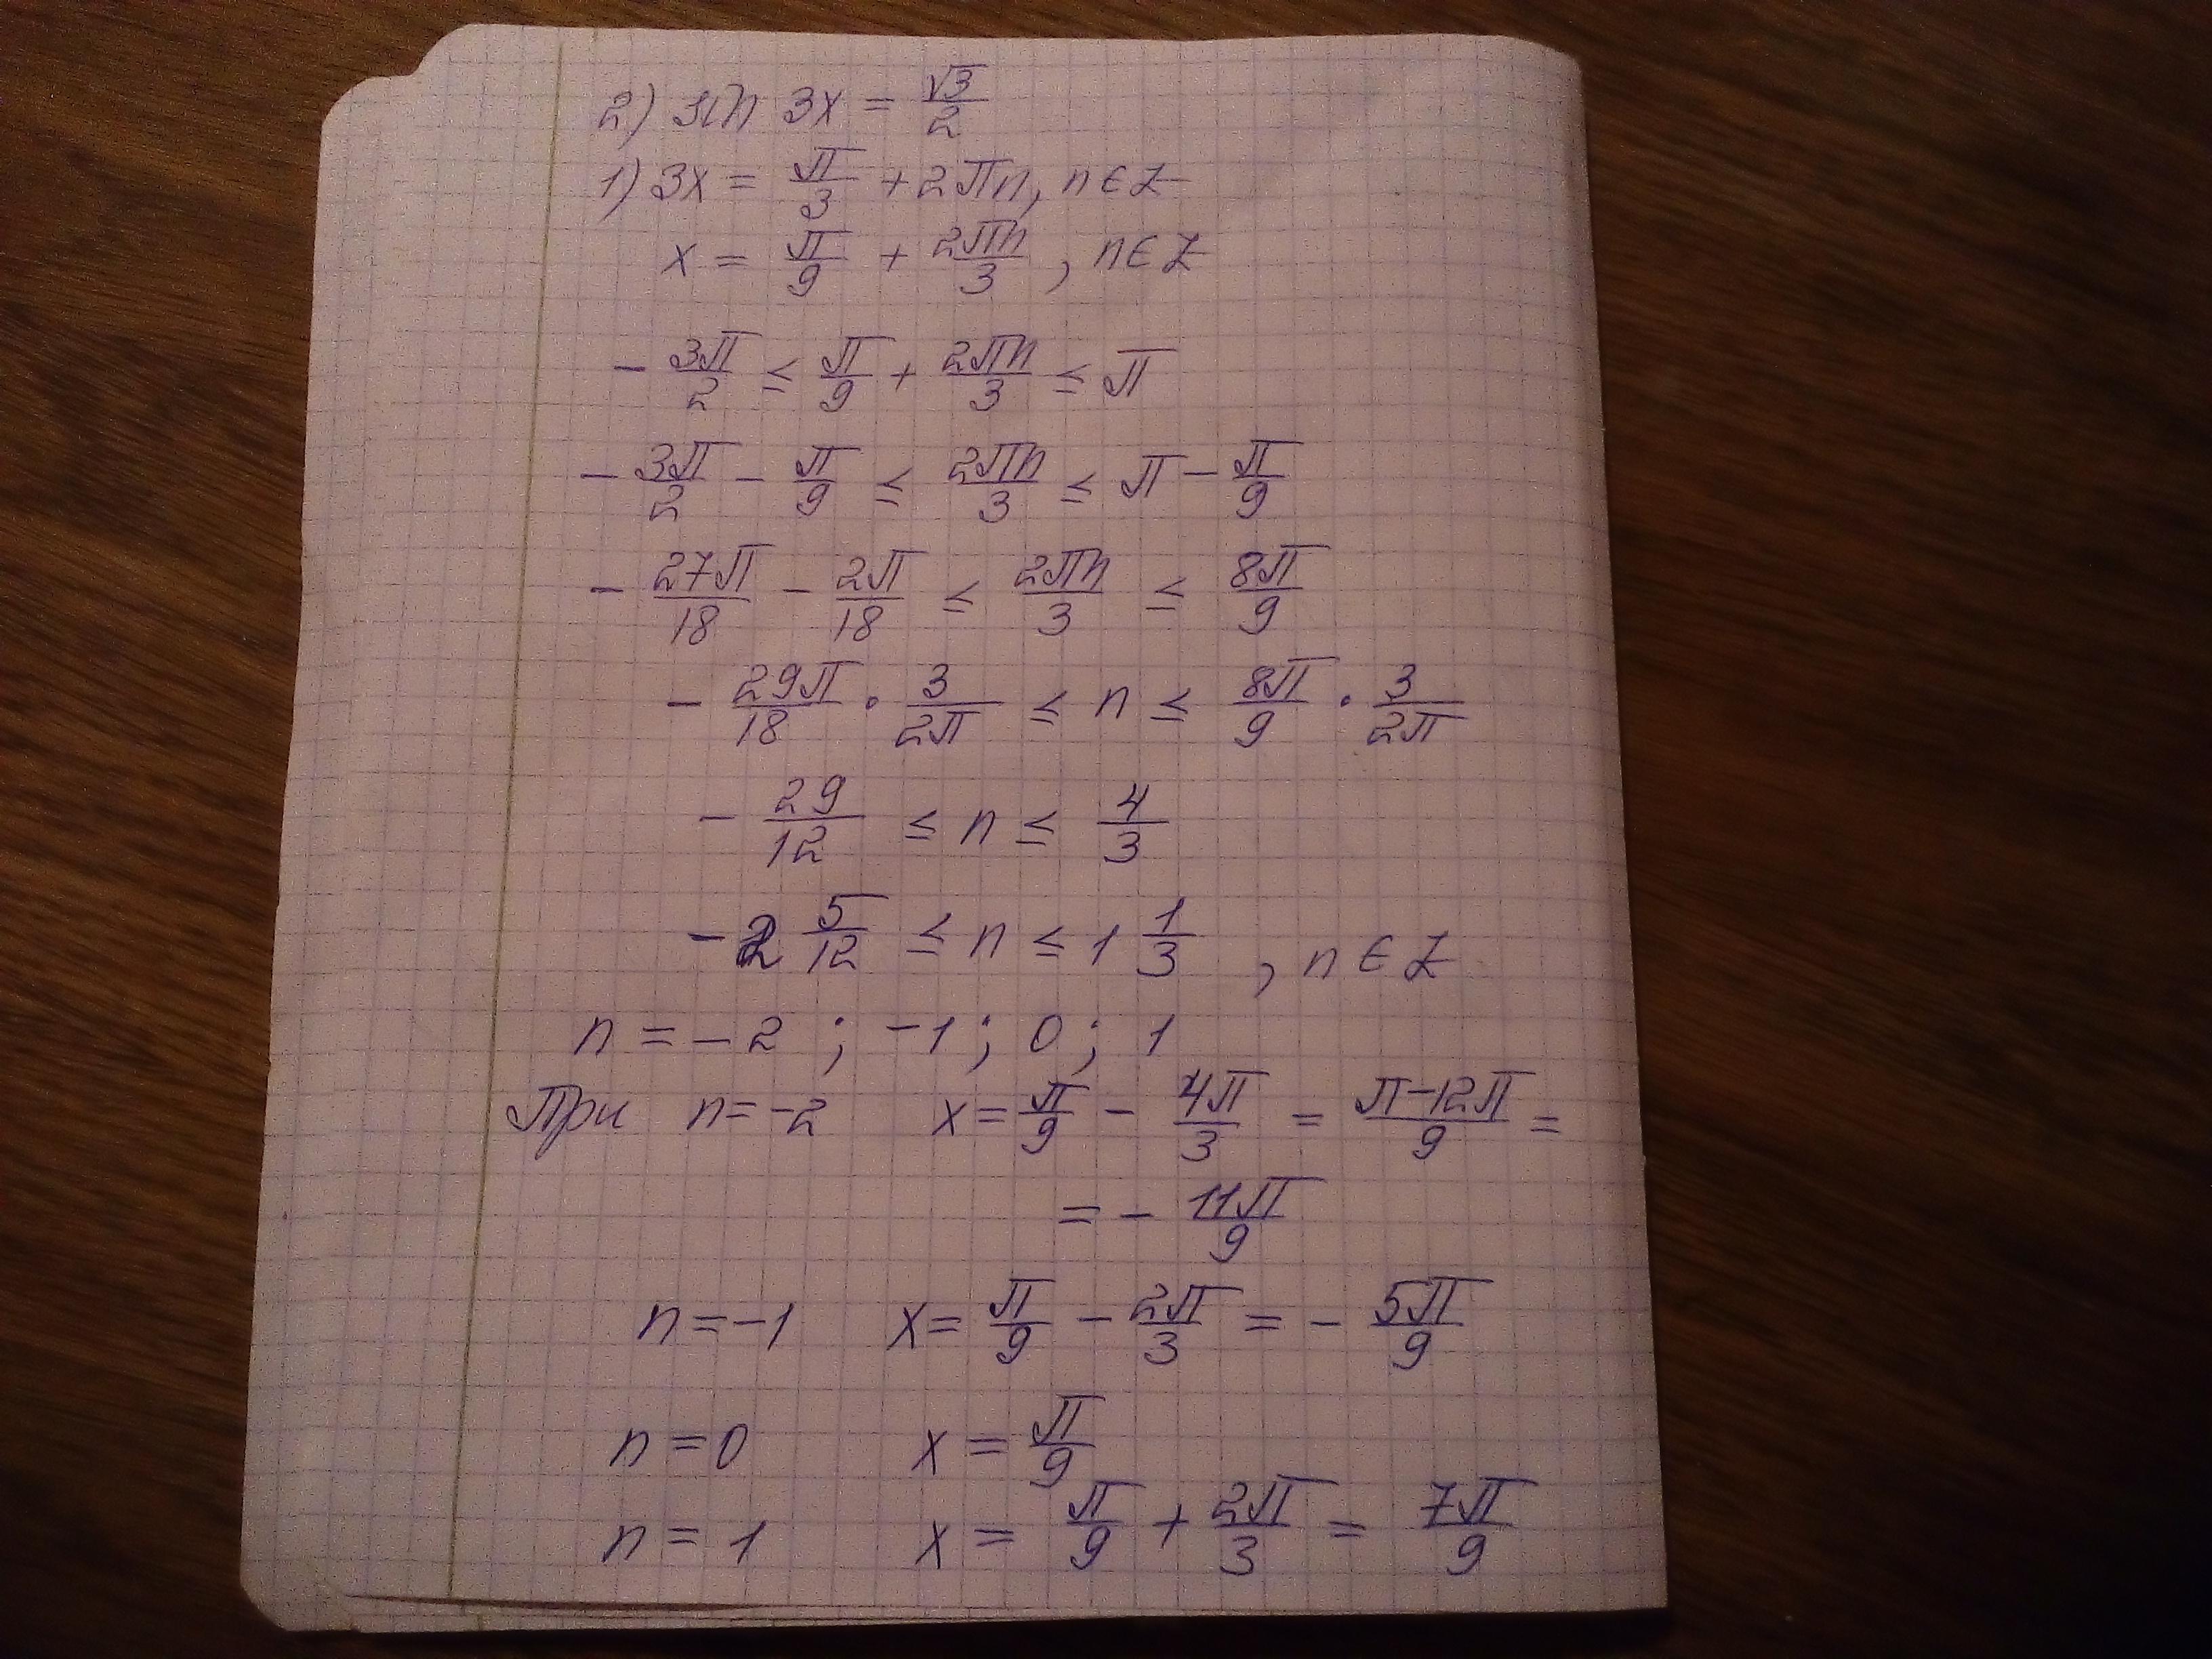 2) sin 3x = √3/2
1) 3x = π/3 + 2πn, n∈Z
x = π/9 + 2πn/3 , n∈Z
- 3π/2 ≤ π/9 + 2πn/3 ≤ π
- 3π/2 - π/9 ≤ 2πn/3 ≤ π - π/9
- 27π/18 - 2π/18 ≤ 2πn/3 ≤ 8π/9
- 29π/18 · 3/2π ≤ n ≤ 8π/9 · 3/2π
- 29/12 ≤ n ≤ 4/3
- 2 5/12 ≤ n ≤ 1 1/3 , n∈Z
n = -2 ; -1 ; 0 ; 1
При n=-2 x = π/9 - 4π/3 = π-12π/9 =
= - 11π/9
n=-1 x= π/9 - 2π/3 = - 5π/9
n=0 x = π/9
n = 1 x = π/9 + 2π/3 = 7π/9